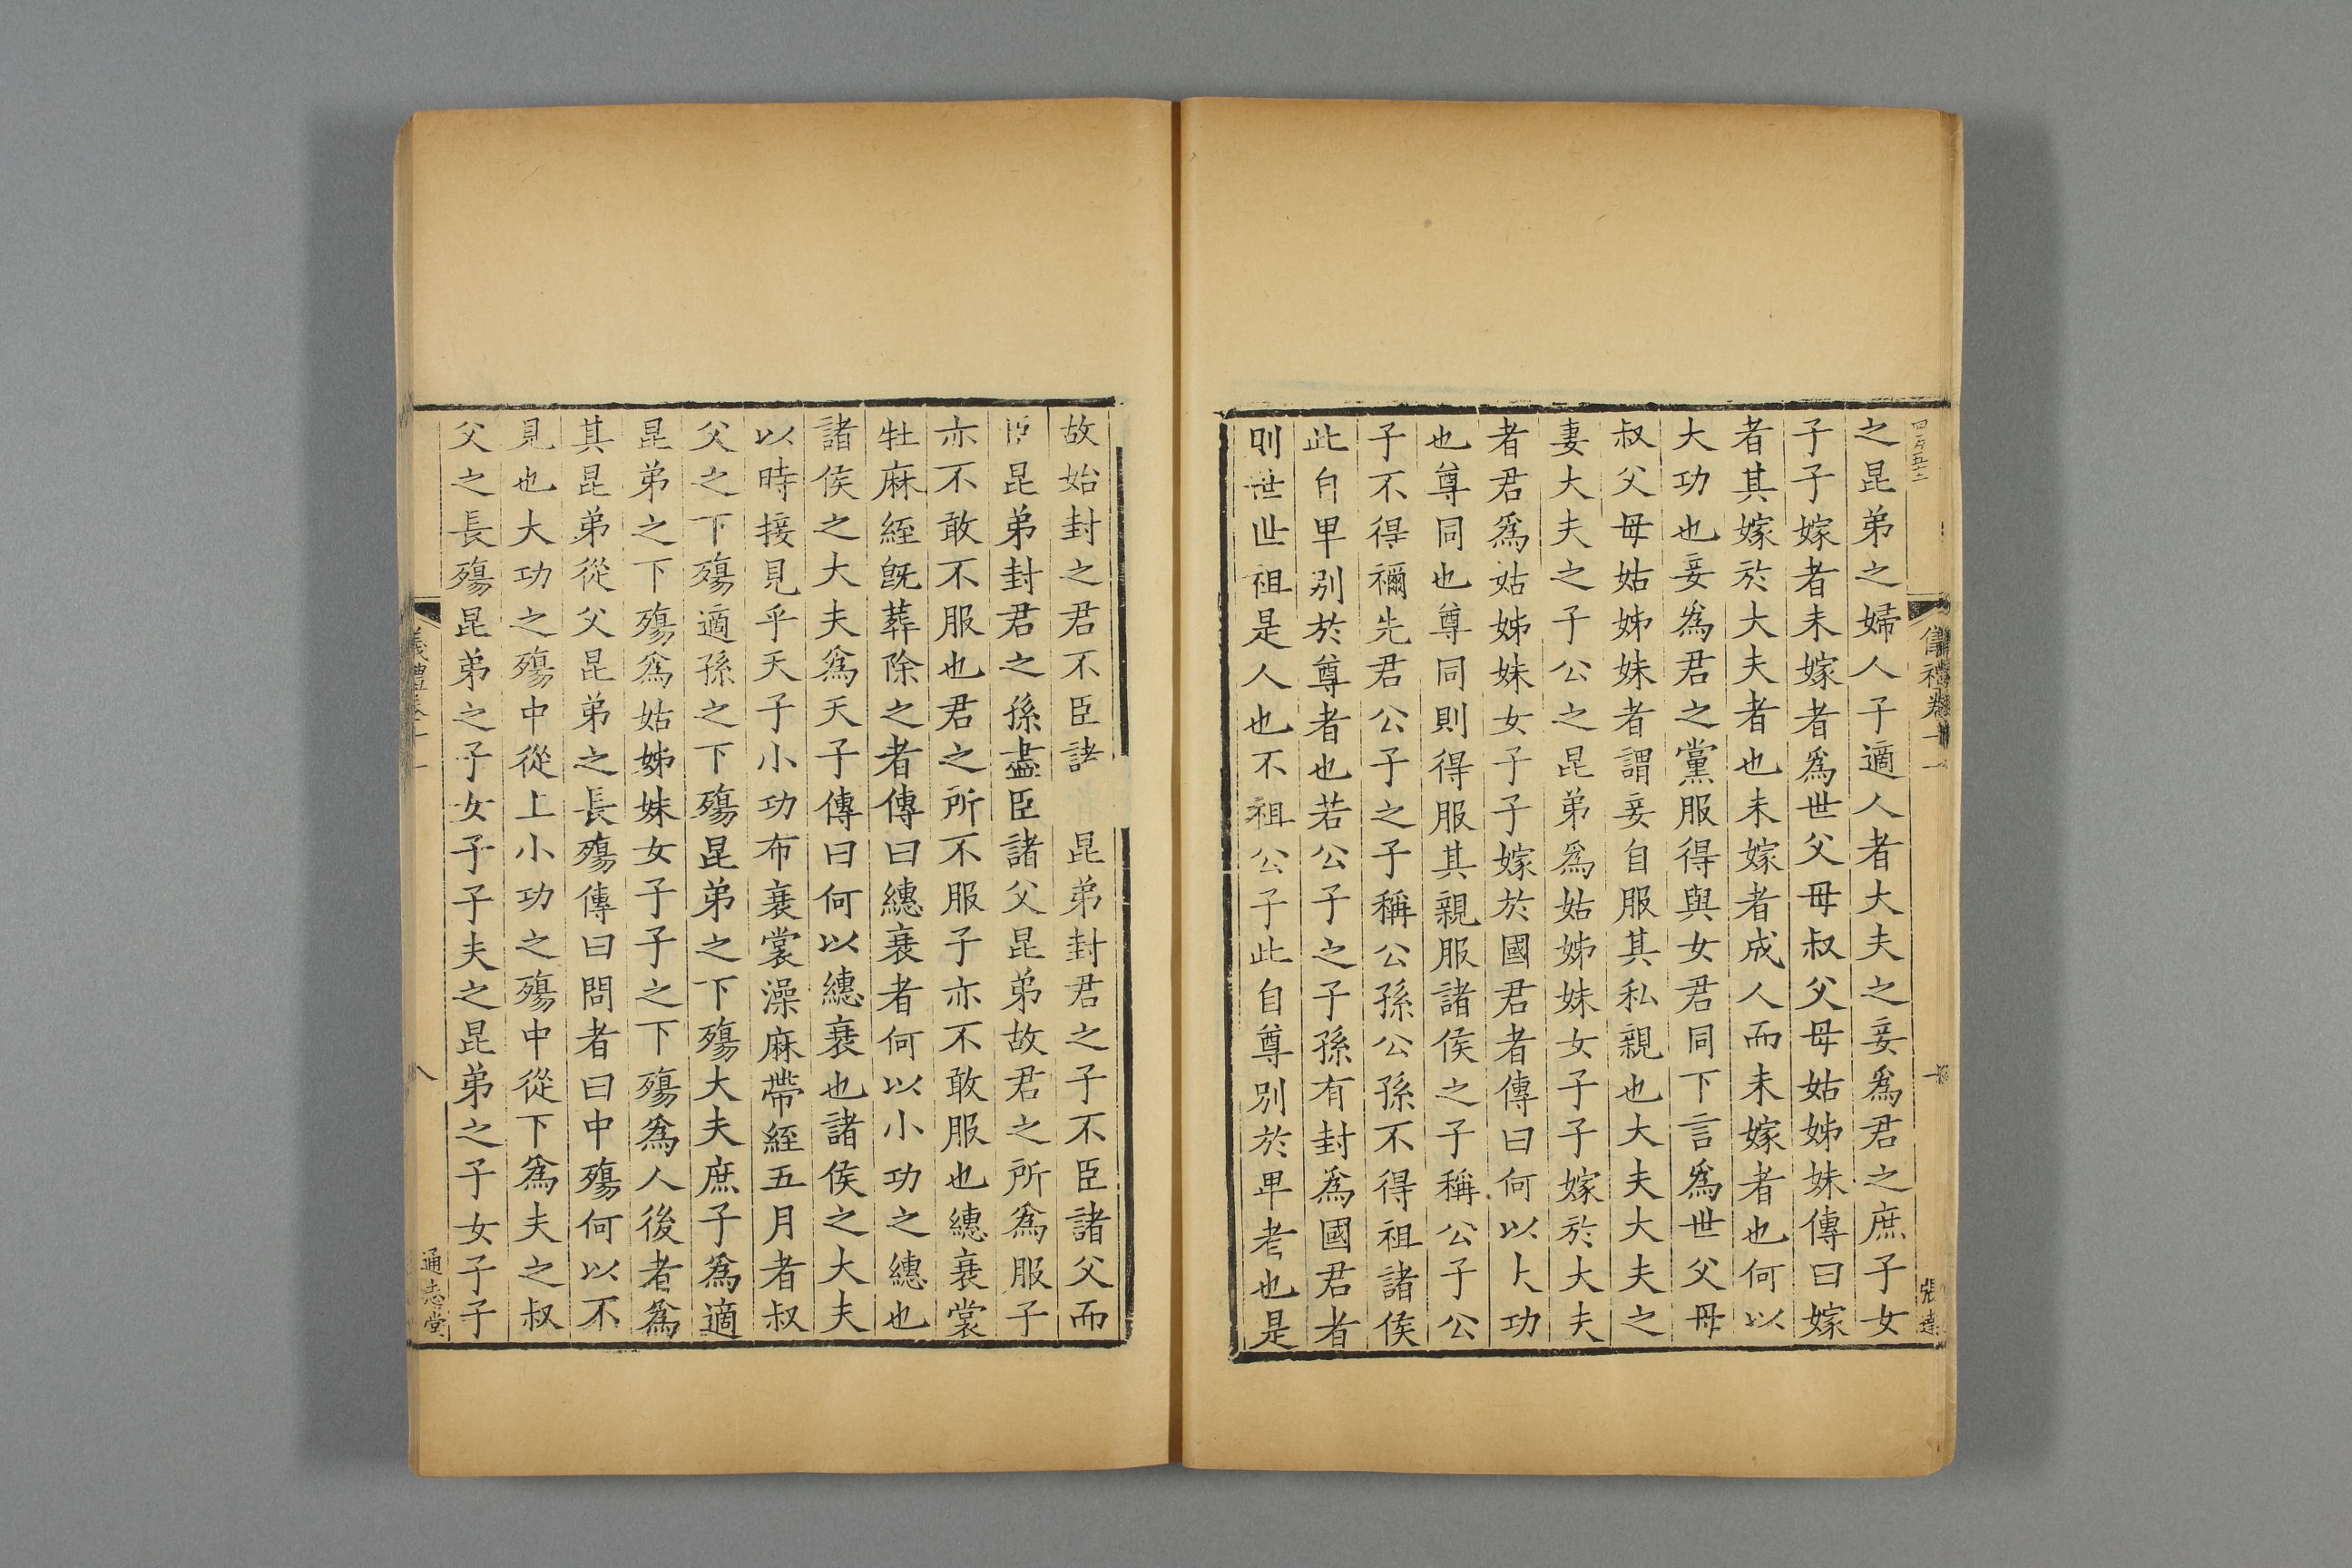 之昆弟之婦人子適人者大夫之妾爲君之庶子女
子子嫁者未嫁者爲世父母叔父母姑姊妹傳曰嫁
者其嫁於大夫者也未嫁者成人而未嫁者也何以
大功也妾爲君之黨服得與女君同下言爲世父母
叔父母姑姊妹者謂妾自服其私親也大夫大夫之
妻大夫之子公之昆弟爲姑姊妹女子子嫁於大夫
者君爲姑姊妹女子子嫁於國君者傳曰何以大功
也尊同也尊同則得服其親服諸侯之子稱公子公
子不得禰先君公子之子稱公孫公孫不得祖諸侯
此自卑別於尊者也若公子之子孫有封爲國君者
則世世祖是人也不祖公子此自尊別於卑者也是
張達
故始封之君不臣諸昆弟封君之子不臣諸父而
臣昆弟封君之孫盡臣諸父昆弟故君之所爲服子
亦不敢不服也君之所不服子亦不敢服也繐衰裳
牡麻絰旣葬除之者傳曰繐衰者何以小功之繐也
諸侯之大夫爲天子傳曰何以繐衰也諸侯之大夫
以時接見乎天子小功布衰裳澡麻帶絰五月者叔
父之下殤適孫之下殤昆弟之下殤大夫庶子爲適
昆弟之下殤爲姑姊妹女子子之下殤爲人後者爲
其昆弟從父昆弟之長殤傳曰問者曰中殤何以不
見也大功之殤中從上小功之殤中從下爲夫之叔
父之長殤昆弟之子女子子夫之昆弟之子女子子
儀禮卷十一
八
通志堂